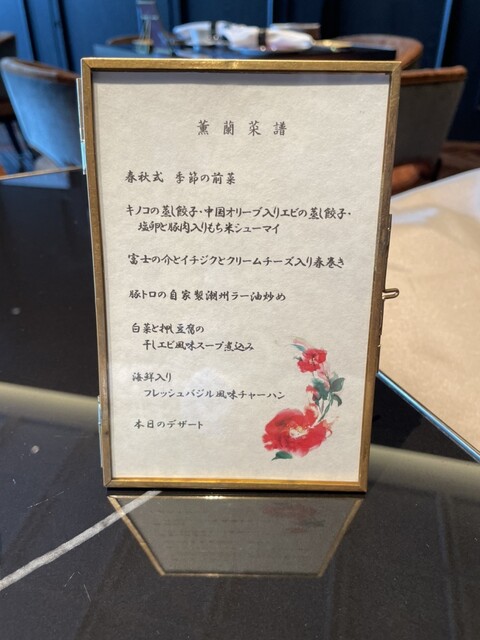 薫蘭菜譜
春秋式 季節の前菜
キノコの蒸し餃子・中国オリーブ入りエビの蒸し餃子・
塩卵と豚肉入りもち米シューマイ
富士の介とイチジクとクリームチーズ入り春巻き
豚トロの自家製潮州ラー油炒め
白菜と押し豆腐の
干しエビ風味スープ煮込み
海鮮入り
フレッシュバジル風味チャーハン
本日のデザート